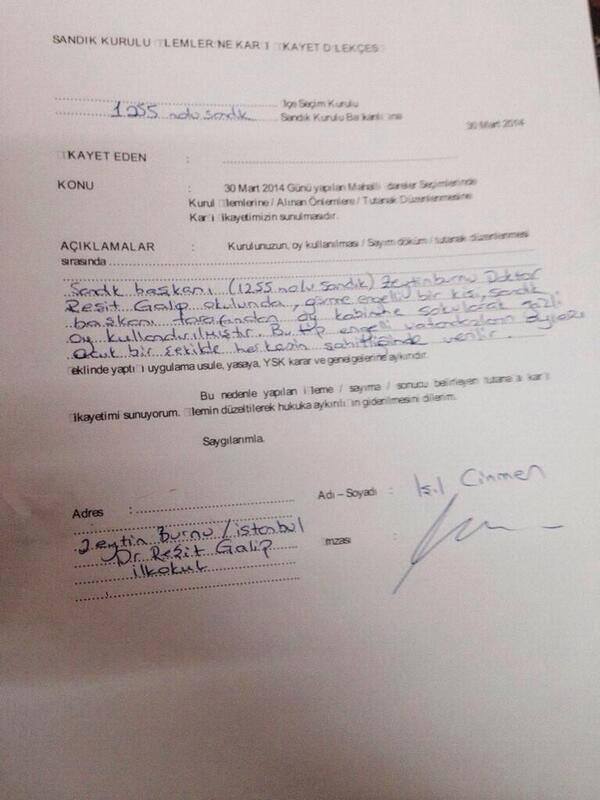 SANDIK KURULU İŞLEMLERİNE KARŞI ŞİKAYET DİLEKÇESİ
İlçe Seçim Kurulu
1255 nolu sandık Sandık Kurulu Başkanlığına
30 Mart 2014
ŞİKAYET EDEN :
KONU : 30 Mart 2014 Günü yapılan Mahalli İdareler Seçimlerinde
Kurul İşlemlerine / Alınan Önlemlere / Tutanak Düzenlenmesine
Karşı Şikayetimizin sunulmasıdır.
AÇIKLAMALAR : Kurulunuzun, oy kullanılması / Sayım döküm / tutanak düzenlenmesi
sırasında
Sandık başkanı (1255 nolu sandık) Zeytinburnu Doktor
Reşit Galip okulunda, görme engelli bir kişi, sandık
başkanı tarafından oy kabinine sokularak gizli
oy kullandırılmıştır. Bu tip engelli vatandaşların oyları
açık bir şekilde herkesin şahitliğinde verilir.
şeklinde yaptığı uygulama usule, yasaya, YSK karar ve genelgelerine aykırıdır.
Bu nedenle yapılan işleme / sayıma / sonucu belirleyen tutanağa karşı
şikayetimi sunuyorum. İşlemin düzeltilerek hukuka aykırılığın giderilmesini dilerim.
Saygılarımla.
Adı – Soyadı : Işıl Cinmen
Adres :
Zeytin Burnu / İstanbul
Dr Reşit Galip
İlkokul
İmzası :